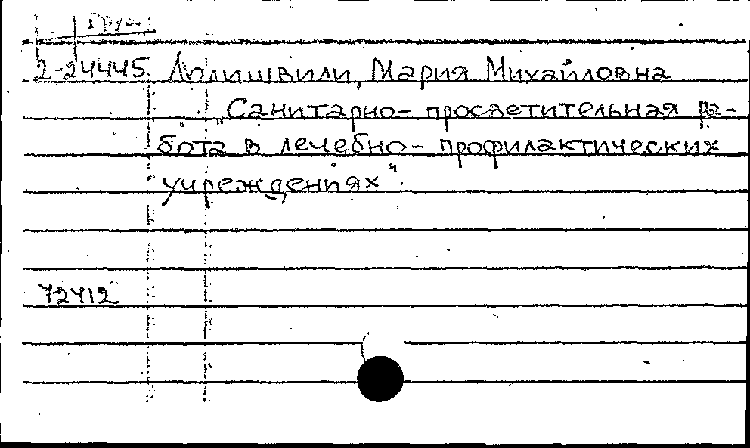 Груз.
2-24445 Лолишвили, Мария Михайловна
„Санитарно-просветительная ра-
бота в лечебно-профилактических
учреждениях"
72412